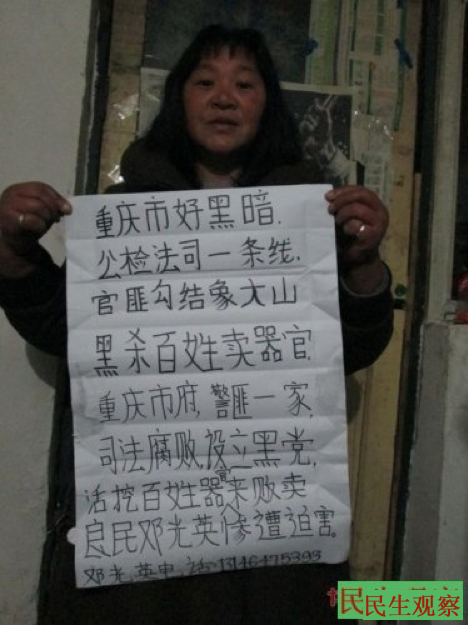 重庆市好黑暗.
公检法司一条线,
官匪勾结象大山
黑杀百姓卖器官,
重庆市府,警匪一家,
司法腐败,设立黑党,
活挖百姓器官来败卖
良民邓光英惨遭迫害。
邓光英电话:13146475393
民民生观察